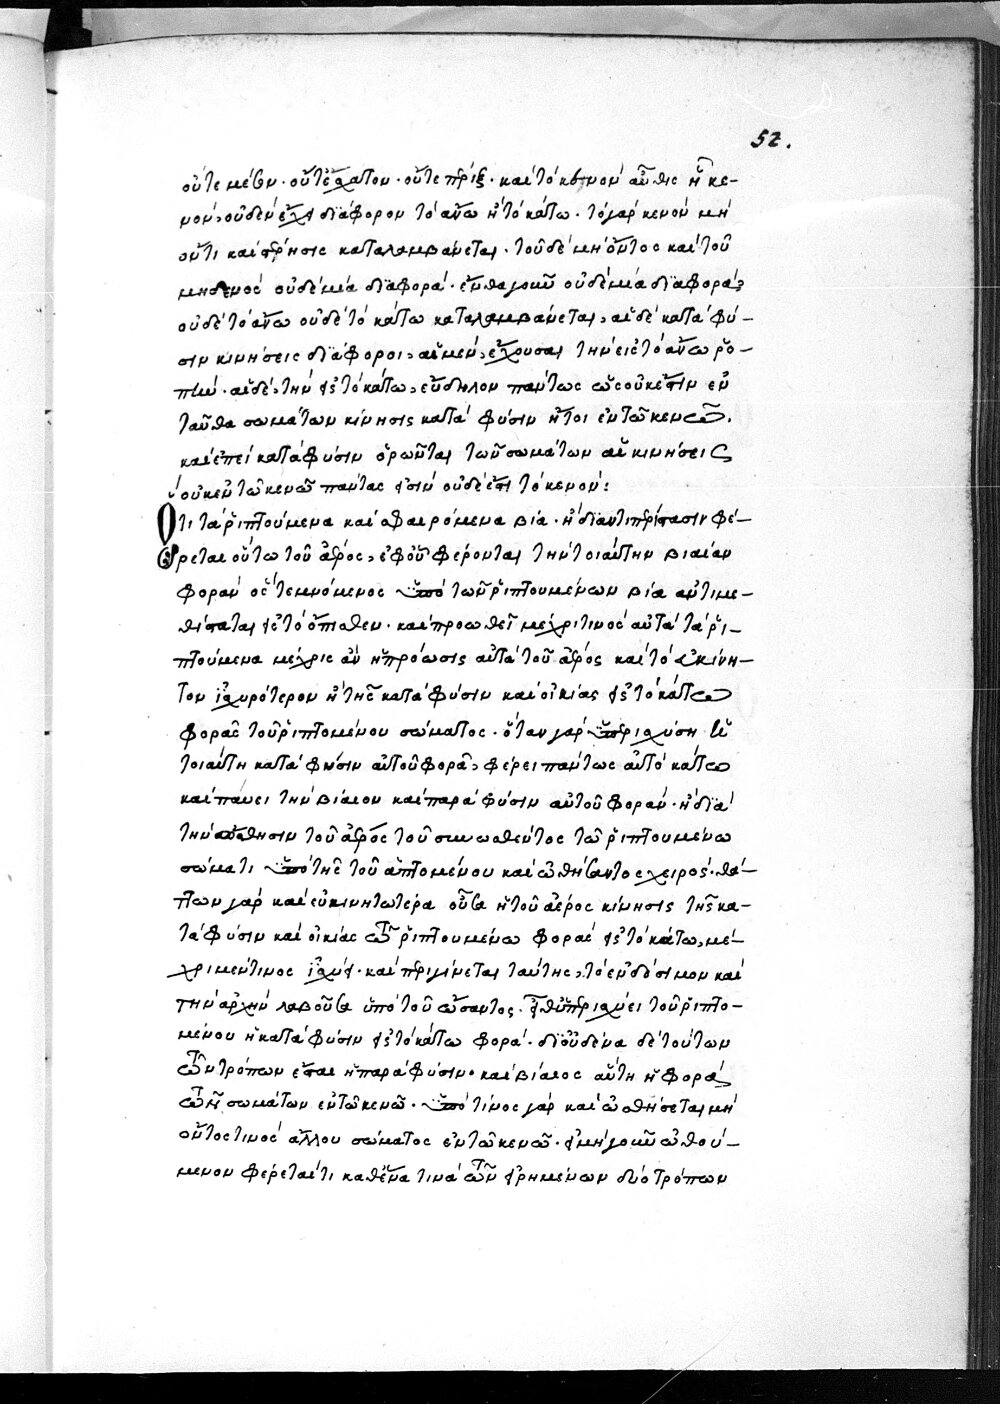 52.
οὔτε μέσον· οὔτ' ἔσχατον· οὔτε πέριξ· καὶ τὸ κενὸν αὖθις ᾗ κε-
νὸν, οὐδὲν ἔχει διάφορον τὸ ἄνω ἢ τὸ κάτω· τὸ γὰρ κενὸν μὴ
ὄν τι καὶ στέρησις καταλαμβάνεται· τοῦ δὲ μὴ ὄντος καὶ τοῦ
μηδενὸς οὐδεμία διαφορά· ἔνθα γοῦν οὐδεμία διαφορά,
οὐδὲ τὸ ἄνω οὐδὲ τὸ κάτω καταλαμβάνεται, αἱ δὲ κατὰ φύ-
σιν κινήσεις διάφοροι, αἱ μὲν, ἔχουσαι τὴν εἰς τὸ ἄνω ῥο-
πὴν· αἱ δὲ, τὴν εἰς τὸ κάτω, εὔδηλον πάντως ὡς οὐκ ἔστιν ἐν
ταῦθα σωμάτων κίνησις κατὰ φύσιν ἤτοι ἐν τῶ κενῶ.
καὶ ἐπεὶ κατὰ φύσιν ὁρῶνται τῶν σωμάτων αἱ κινήσεις
οὐκ ἐν τῶ κενῶ πάντως εἰσὶν οὐδέ ἐστι τὸ κενόν:
Ὅτι τὰ ῥιπτούμενα καὶ ἀφαιρόμενα βία· ἢ δι' ἀντιπερίστασιν φέ-
ρεται οὕτω τοῦ ἀέρος, ἐφ' οὗ φέρονται τὴν τοιαύτην βιαίαν
φορὰν ὃς τεμνόμενος ὑπὸ τῶν ῥιπτουμένων βία ἀντιμε-
θίσταται εἰς τὸ ὄπισθεν· καὶ προωθεῖ μέχρι τινὸς αὐτὰ τὰ ῥι-
πτούμενα μέχρις ἂν ἡ πρόωσις αὐτὰ τοῦ ἀέρος καὶ τὸ εὐκίνη-
τον ἰσχυρότερον ἢ τῆς κατὰ φύσιν καὶ οἰκίας εἰς τὸ κάτω
φορᾶς τοῦ ῥιπτομένου σώματος· ὅταν γὰρ ὑπερισχύση ἡ
τοιαύτη κατὰ φύσιν αὐτοῦ φορὰ, φέρει πάντως αὐτὸ κάτω
καὶ παύει τὴν βίαιον καὶ παρὰ φύσιν αὐτοῦ φοράν· ἢ διὰ
τὴν ὤθησιν τοῦ ἀέρος τοῦ συνωθέντος τῶ ῥιπτουμένω
σώματι ὑπὸ τῆς τοῦ ἁπτομένου καὶ ὠθήσαντος χειρὸς· θά-
ττων γὰρ καὶ εὐκινητωτέρα οὖσα ἡ τοῦ ἀέρος κίνησις τῆς κα-
τὰ φύσιν καὶ οἰκίας τῶ ῥιπτουμένω φορᾶς εἰς τὸ κάτω, μέ-
χρι μέν τινος ἰσχύει· καὶ περιγίνεται ταύτης, τὸ ἐνδόσιμον καὶ
τὴν ἀρχὴν λαβοῦσα ὑπὸ τοῦ ὤσαντος· εἶθ' ὑπερισχύει τοῦ ῥιπτο-
μένου ἡ κατὰ φύσιν εἰς τὸ κάτω φορά· δι' οὐδένα δὲ τούτων
τῶν τρόπων ἔσται ἡ παρὰ φύσιν· καὶ βίαιος αὕτη ἡ φορὰ
τῶν σωμάτων ἐν τῶ κενῶ· ὑπό τινος γὰρ καὶ ὠθήσεται μὴ
ὄντος τινὸς ἄλλου σώματος ἐν τῶ κενῶ· εἰ μὴ γοῦν ὠθού-
μενον φέρεταί τι καθ' ἕνα τινὰ τῶν εἰρημένων δύο τρόπων